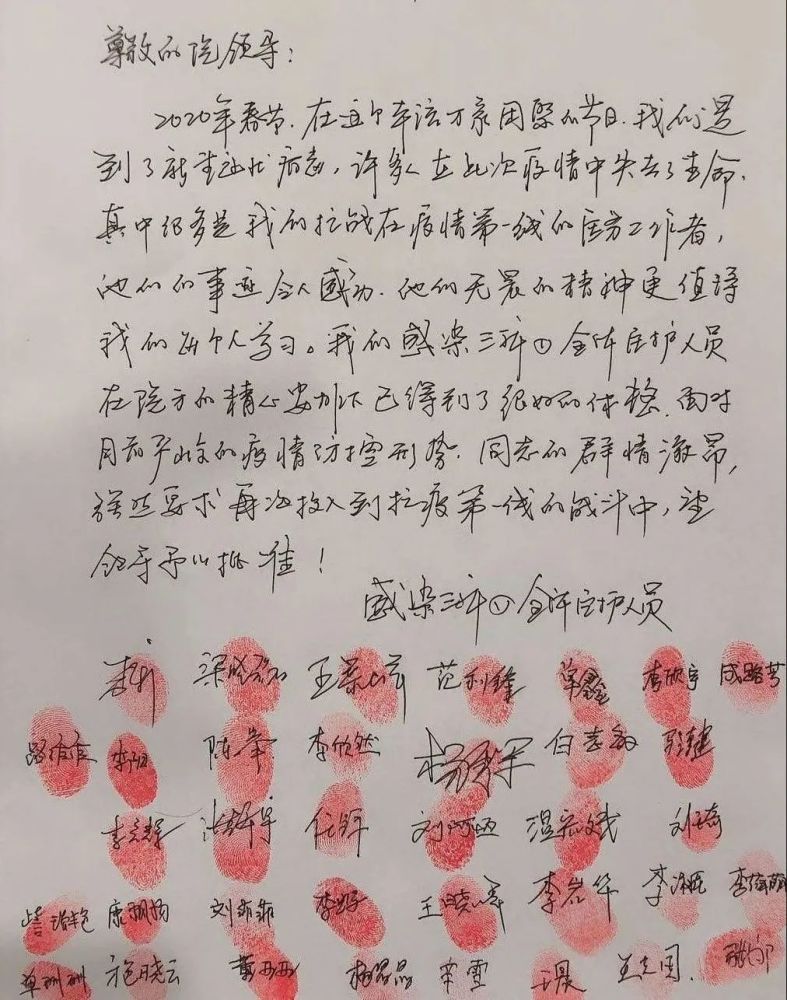 尊敬的院领导：
2020年春节，在这个本该万家团聚的节日，我们遇
到了新型冠状病毒，许多人在此次疫情中失去了生命，
其中很多是我们抗战在疫情第一线的医务工作者，
他们的事迹令人感动，他们无畏的精神更值得
我们每个人学习。我们感染三科①全体医护人员
在院方的精心安排下已得到了很好的休整，面对
目前严峻的疫情防控形势，同志们群情激昂，
强烈要求再次投入到抗疫第一线的战斗中，望
领导予以批准！
感染三科①全体医护人员
李 梁 王 范利锋 鑫 李欣宇 成路芳
路佳佳 李 陈军 李欣然 杨军 白志 彭建
李 张 任 刘阿西 温 刘琦
康珮扬 刘菲菲 李婷 王晓军 李岩华 李 李
单珊珊 施晓云 黄西西 杨晶晶 辛雪 王晨